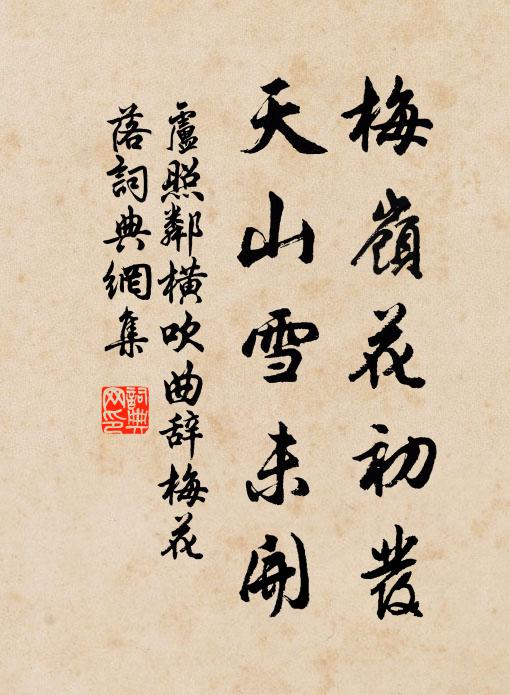 梅嶺花初發
天山雪未開
盧照鄰橫吹曲辞梅花
落詞典網集
詞典网印